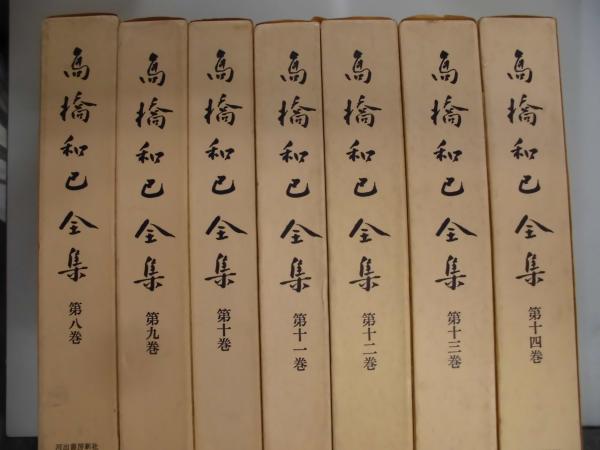 高橋和巳全集
第八巻
河出書房新社
高橋和巳全集
第九巻
高橋和巳全集
第十巻
高橋和巳全集
第十一巻
高橋和巳全集
第十二巻
高橋和巳全集
第十三巻
高橋和巳全集
第十四巻